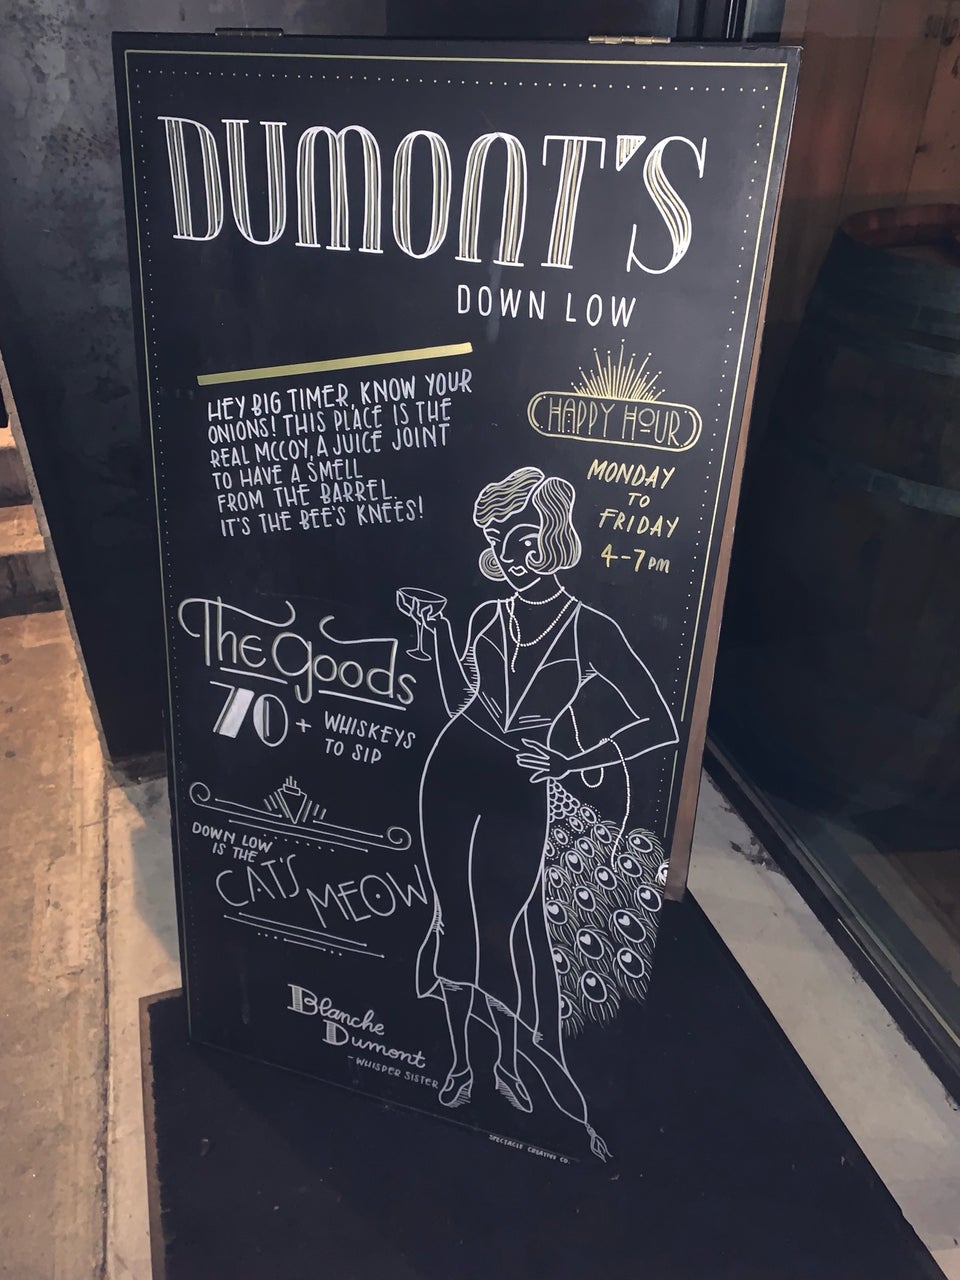 DUMONT'S
DOWN LOW
HEY BIG TIMER, KNOW YOUR
ONIONS! THIS PLACE IS THE
REAL MCCOY, A JUICE JOINT
TO HAVE A SMELL
FROM THE BARREL.
IT'S THE BEE'S KNEES!
HAPPY HOUR
MONDAY
TO
FRIDAY
4-7PM
The goods
70+ WHISKEYS
TO SIP
DOWN LOW
IS THE
CAT'S
MEOW
Blanche
Dumont
- WHISPER SISTER
SPECTACLE CREATIVE CO.